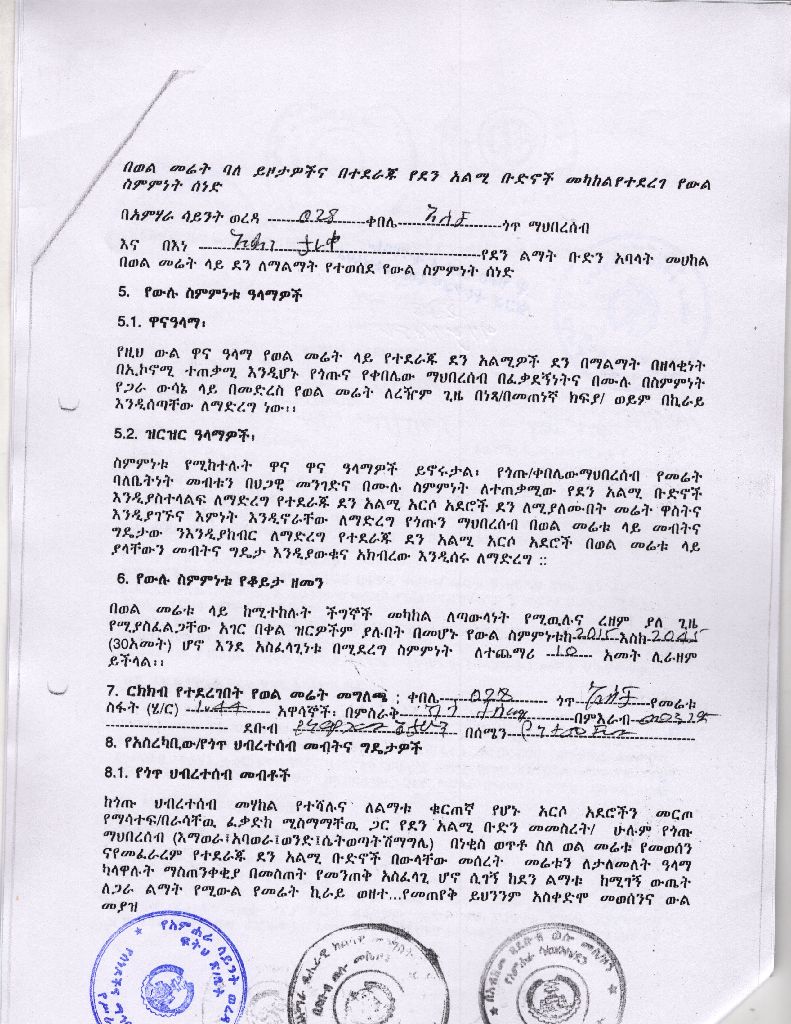 በወል መሬት ባለ ይዞታዎችና በተደራጁ የደን አልሚ ቡድኖች መካከልየተደረገ የውል
ስምምነት ሰነድ
በአምሃራ ሳይንት ወረዳ 028 ቀበሌ ጎጥ ማህበረሰብ
እና በእነ የደን ልማት ቡድን አባላት መሀከል
በወል መሬት ላይ ደን ለማልማት የተወሰደ የውል ስምምነት ሰነድ
5. የውሉ ስምምነቱ ዓላማዎች
5.1. ዋናዓላማ፡
የዚህ ውል ዋና ዓላማ የወል መሬት ላይ የተደራጁ ደን አልሚዎች ደን በማልማት በዘላቂነት
በኢኮኖሚ ተጠቃሚ እንዲሆኑ የጎጡና የቀበሌው ማህበረሰብ በፈቃደኝነትና በሙሉ በስምምነት
የጋራ ውሳኔ ላይ በመድረስ የወል መሬት ለረዥም ጊዜ በነጻ/በመጠነኛ ክፍያ/ ወይም በኪራይ
እንዲሰጣቸው ለማድረግ ነው፡፡
5.2. ዝርዝር ዓላማዎች፡
ስምምነቱ የሚከተሉት ዋና ዋና ዓላማዎች ይኖሩታል፡ የጎጡ/ቀበሌውማህበረሰብ የመሬት
ባለቤትነት መብቱን በህጋዊ መንገድና በሙሉ ስምምነት ለተጠቃሚው የደን አልሚ ቡድኖች
እንዲያስተላልፍ ለማድረግ የተደራጁ ደን አልሚ አርሶ አደሮች ደን ለሚያለሙበት መሬት ዋስትና
እንዲያገኙና እምነት እንዲኖራቸው ለማድረግ የጎጡን ማህበረሰብ በወል መሬቱ ላይ መብትና
ግዴታው ንእንዲያከብር ለማድረግ የተደራጁ ደን አልሚ አርሶ አደሮች በወል መሬቱ ላይ
ያላቸውን መብትና ግዴታ እንዲያውቁና አክብረው እንዲሰሩ ለማድረግ ::
6. የውሉ ስምምነቱ የቆይታ ዘመን
በወል መሬቱ ላይ ከሚተከሉት ችግኞች መካከል ለጣውላነት የሚዉሉና ረዘም ያለ ጊዜ
የሚያስፈልጋቸው አገር በቀል ዝርዎችም ያሉበት በመሆኑ የውል ስምምነቱከ 2015 እስከ 2045
(30አመት) ሆኖ እንደ አስፈላጊነቱ በሚደረግ ስምምነት ለተጨማሪ 10 አመት ሊራዘም
ይችላል፡፡
7. ርክክብ የተደረገበት የወል መሬት መግለጫ ፡ ቀበሌ 028 ጎጥ የመሬቱ
ስፋት (ሄ/ር) 1.44 አዋሳኞች፡ በምስራቅ በምእራብ
ደቡብ በሰሜን
8. የአስረካቢው/የጎጥ ህብረተሰብ መብትና ግዴታዎች
8.1. የጎጥ ህብረተሰብ መብቶች
ከጎጡ ህብረተሰብ መሃከል የተሻሉና ለልማቱ ቁርጠኛ የሆኑ አርሶ አደሮችን መርጦ
የማሳተፍ/በራሳቸዉ ፈቃድከ ሚስማማቸዉ ጋር የደን አልሚ ቡድን መመስረት/ ሁሉም የጎጡ
ማህበረሰብ (እማወራ፤አባወራ፤ወንድ፤ሴትወጣትሽማግሌ) በነቂስ ወጥቶ ስለ ወል መሬቱ የመወሰን
ናየመፈራረም የተደራጁ ደን አልሚ ቡድኖች በውላቸው መሰረት መሬቱን ለታለመለት ዓላማ
ካላዋሉት ማስጠንቀቂያ በመስጠት የመንጠቅ አስፈላጊ ሆኖ ሲገኝ ከደን ልማቱ ከሚገኝ ውጤት
ለጋራ ልማት የሚውል የመሬት ኪራይ ወዘተ...የመጠየቅ ይህንንም አስቀድሞ መወሰንና ውል
መያዝ
የአምሐራ ሳይንት ወረዳ